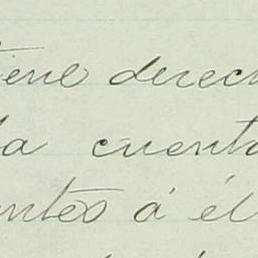 tiene derech
la cuenta
entes á él